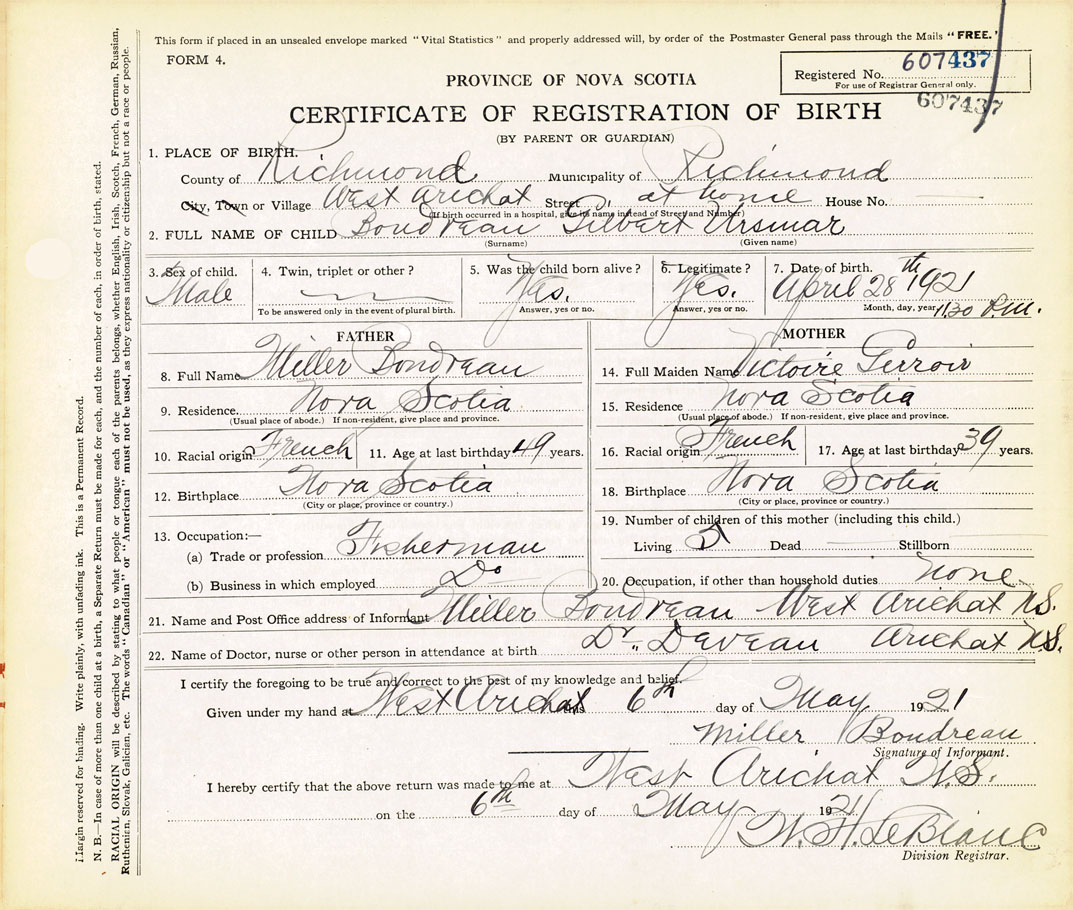 This form if placed in an unsealed envelope marked "Vital Statistics" and properly addressed will, by order of the Postmaster General pass through the Mails "FREE."
FORM 4.
Registered No. 607437
For use of Registrar General only.
607437
PROVINCE OF NOVA SCOTIA
CERTIFICATE OF REGISTRATION OF BIRTH
(BY PARENT OR GUARDIAN)
1. PLACE OF BIRTH.
County of Richmond Municipality of Richmond
City, Town or Village West Arichat Street at home House No.
(If birth occurred in a hospital, give its name instead of Street and Number)
2. FULL NAME OF CHILD Boudreau Gilbert Ursmar
(Surname) (Given name)
3. Sex of child. 4. Twin, triplet or other? 5. Was the child born alive? 6. Legitimate? 7. Date of birth.
Male Yes. Yes. April 28th 1921
To be answered only in the event of plural birth. Answer, yes or no. Answer, yes or no. Month, day, year 11.30 P.M.
FATHER MOTHER
8. Full Name Miller Boudreau 14. Full Maiden Name Victoire Girroir
9. Residence. Nova Scotia 15. Residence Nova Scotia
(Usual place of abode.) If non-resident, give place and province. (Usual place of abode.) If non-resident, give place and province.
10. Racial origin French 11. Age at last birthday 49 years. 16. Racial origin French 17. Age at last birthday 39 years.
12. Birthplace Nova Scotia 18. Birthplace Nova Scotia
(City or place, province or country.) (City or place, province or country.)
13. Occupation:— 19. Number of children of this mother (including this child.)
(a) Trade or profession Fisherman Living 5 Dead Stillborn
(b) Business in which employed Do 20. Occupation, if other than household duties none
21. Name and Post Office address of Informant Miller Boudreau West Arichat N.S.
22. Name of Doctor, nurse or other person in attendance at birth Dr. Deveau Arichat N.S.
I certify the foregoing to be true and correct to the best of my knowledge and belief.
Given under my hand at West Arichat this 6th day of May 1921
Miller Boudreau
Signature of Informant.
I hereby certify that the above return was made to me at West Arichat N.S.
on the 6th day of May 1921
W. H. LeBlanc
Division Registrar.
Margin reserved for binding. Write plainly, with unfading ink. This is a Permanent Record.
N. B.—In case of more than one child at a birth, a Separate Return must be made for each, and the number of each, in order of birth, stated.
RACIAL ORIGIN will be described by stating to what people or tongue each of the parents belongs, whether English, Irish, Scotch, French, German, Russian,
Ruthenian, Slovak, Galician, etc. The words "Canadian" or "American" must not be used, as they express nationality or citizenship but not a race or people.